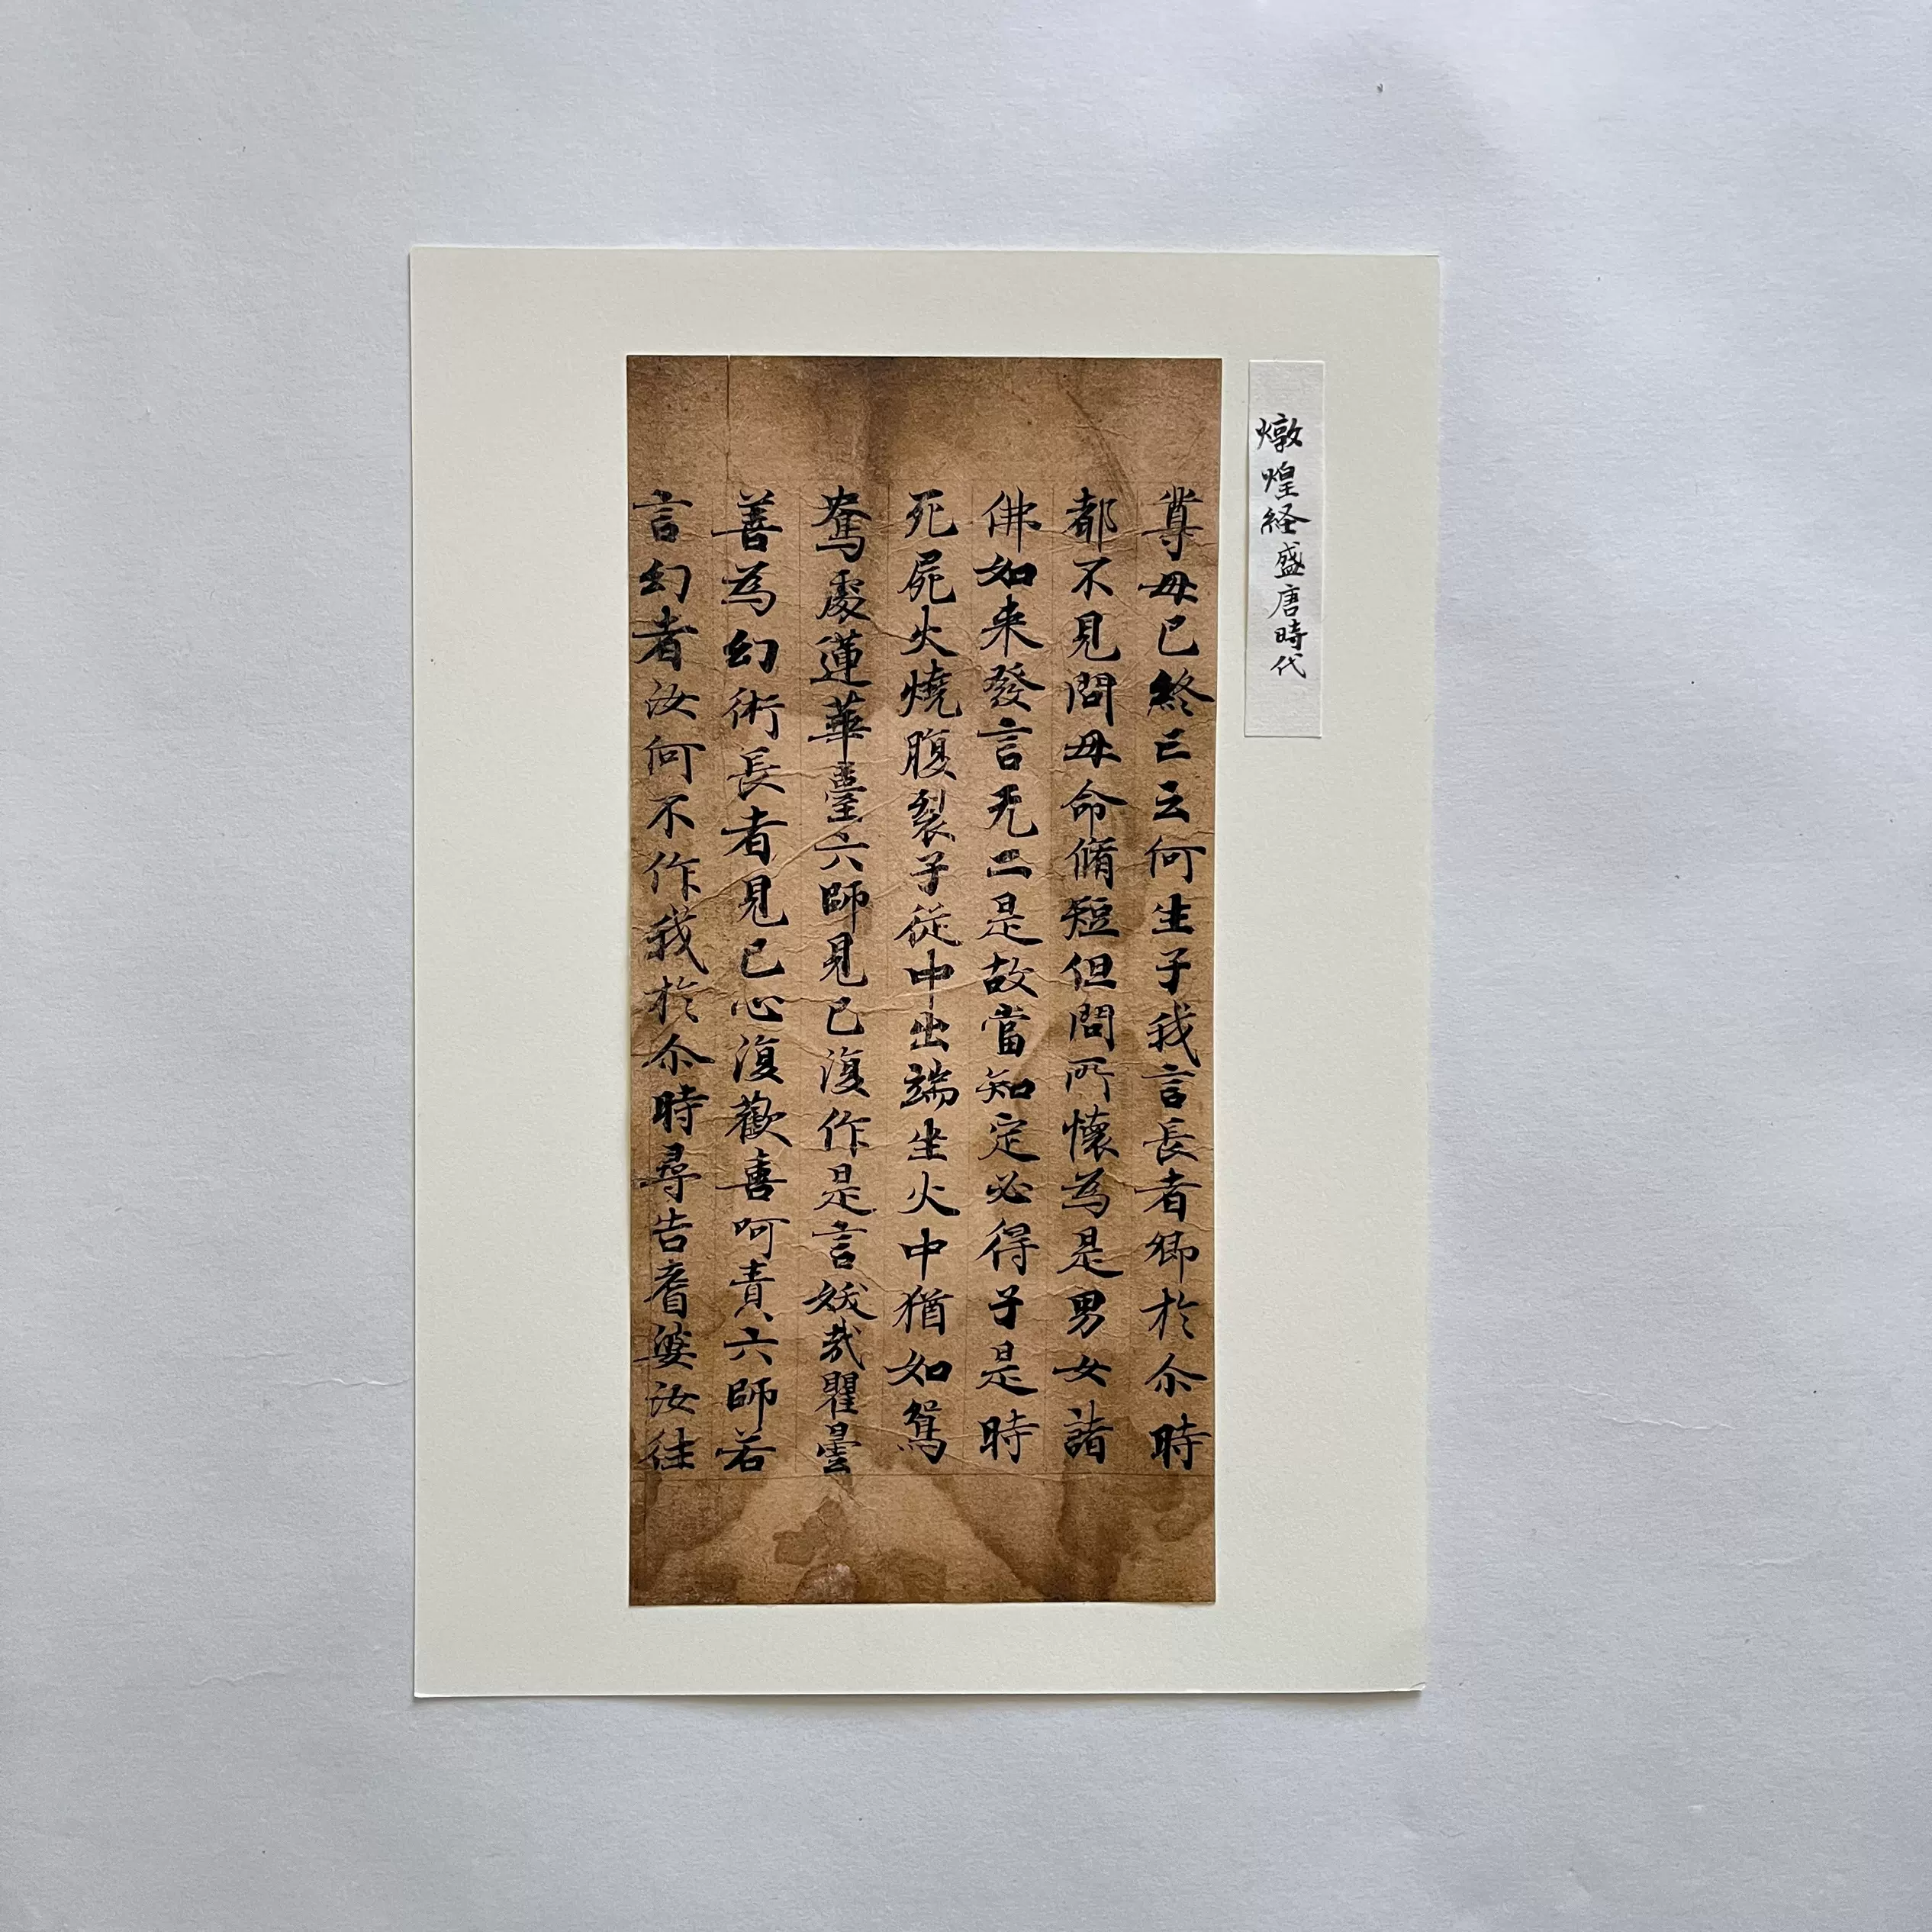 燉煌経盛唐時代
尊母已終亡云何生子我言長者卿於尒時
都不見問母命脩短但問所懷為是男女諸
佛如来發言无二是故當知定必得子是時
死屍火燒腹裂子從中出端坐火中猶如鴛
鴦處蓮華臺六師見已復作是言妖哉瞿曇
善為幻術長者見已心復歡喜呵責六師若
言幻者汝何不作我於尒時尋告耆婆汝往